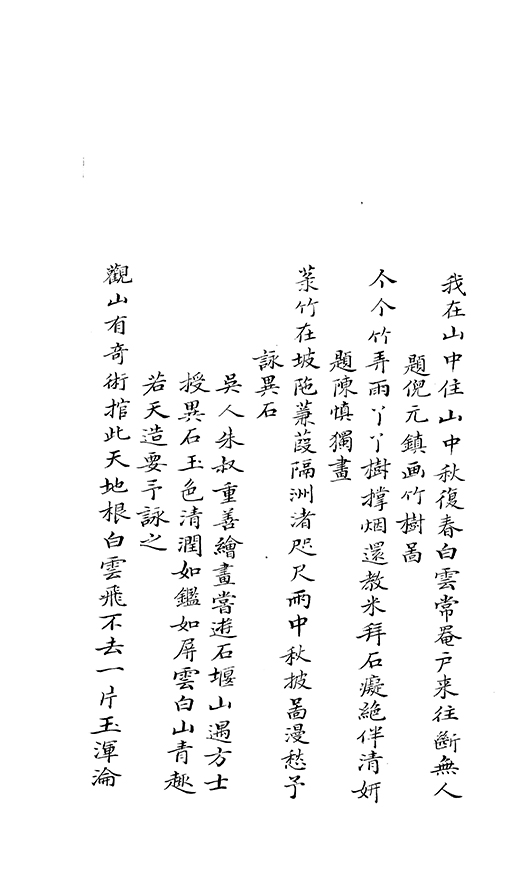 我在山中住山中秋復春白雲常罨戶来往斷無人
題倪元鎮画竹樹啚
个个竹弄雨丫丫樹撑烟還教米拜石癡絶伴清妍
題陳慎獨畫
菉竹在坡陁蒹葭隔洲渚咫尺雨中秋披啚漫愁予
詠異石
吳人朱叔重善繪畫嘗遊石堰山遇方士
授異石玉色清潤如鑑如屏雲白山青趣
若天造要予詠之
觀山有奇術揞此天地根白雲飛不去一片玉渾淪